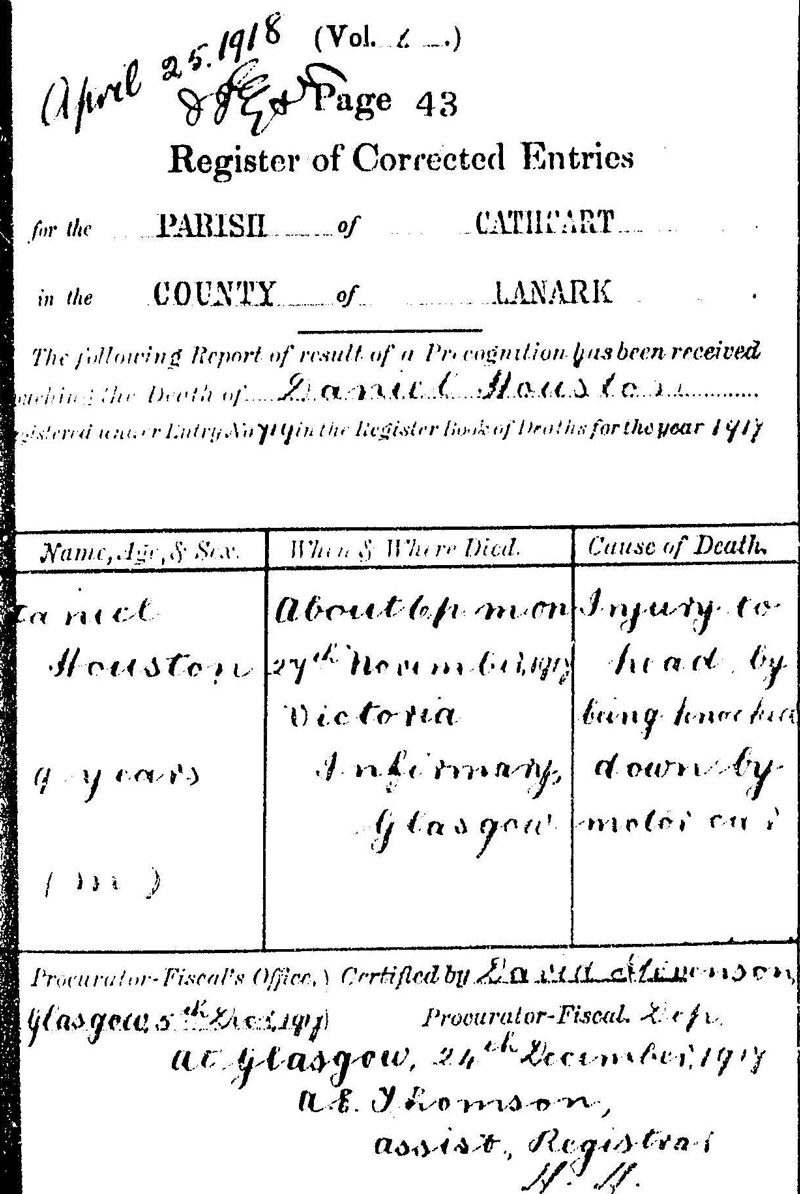 April 25. 1918
(Vol. .)
Page 43
Register of Corrected Entries
for the PARISH of CATHCART
in the COUNTY of LANARK
The following Report of result of a Precognition has been received
touching the Death of Daniel Houston
registered under Entry No 719 in the Register Book of Deaths for the year 1917
Name, Age, & Sex.
When & Where Died.
Cause of Death.
Daniel
Houston
9 years
(M)
About 6 p m on
27th November, 1917
Victoria
Infirmary,
Glasgow
Injury to
head by
being knocked
down by
motor car
Procurator-Fiscal's Office, Certified by David Stevenson,
Glasgow, 5th Dec., 1917 Procurator-Fiscal. Dep.
At Glasgow, 24th December, 1917
A. E. Thomson,
Assist. Registrar